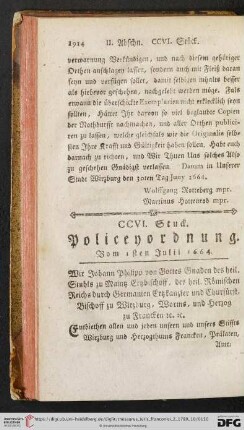 1914 II. Abschn. CCVI. Stück.
verwarnung Verkündigen, und nach diesem gehöriger
Orthen anschlagen lasset, sondern auch mit Fleiß daran
seyn und verfügen sollet, damit selbigen inhalts besser
als hiebevor geschehen, nachgelebt werden möge. Fals
etwann die überschickte Exemplarien nicht erklecklich seyn
sollten, Hättet Ihr davon so viel beglaubte Copien
der Nothdurfft nachmachen, und aller Orthen publici-
ren zu lassen, welche gleichfals wie die Originalia selb-
sten Ihre Krafft und Gültigkeit haben sollen. Habt euch
darnach zu richten, und Wir Thuen Uns solches Also
zu geschehen Gnädigst verlassen. Datum in Unserer
Stadt Wirzburg den 30ten Tag Juny 1662.
Wolffgang mpr.
Martinus mpr.
CCVI. Stuck.
Policeyordnung.
Vom 1sten Julii 1664.
Wir Johann Philipp von Gottes Gnaden des heil.
Stuhls zu Maintz Erzbischoff, des heil. Römischen
Reichs durch Germanien Erzkanzler und Churfürst,
Bischoff zu Wirzburg, Worms, und Herzog
zu Francken ꝛc. ꝛc.
Entbiethen allen und jeden unsern und unsers Stiffts
Wirzburg und Herzogthums Francken, Prälaten,
Amt: